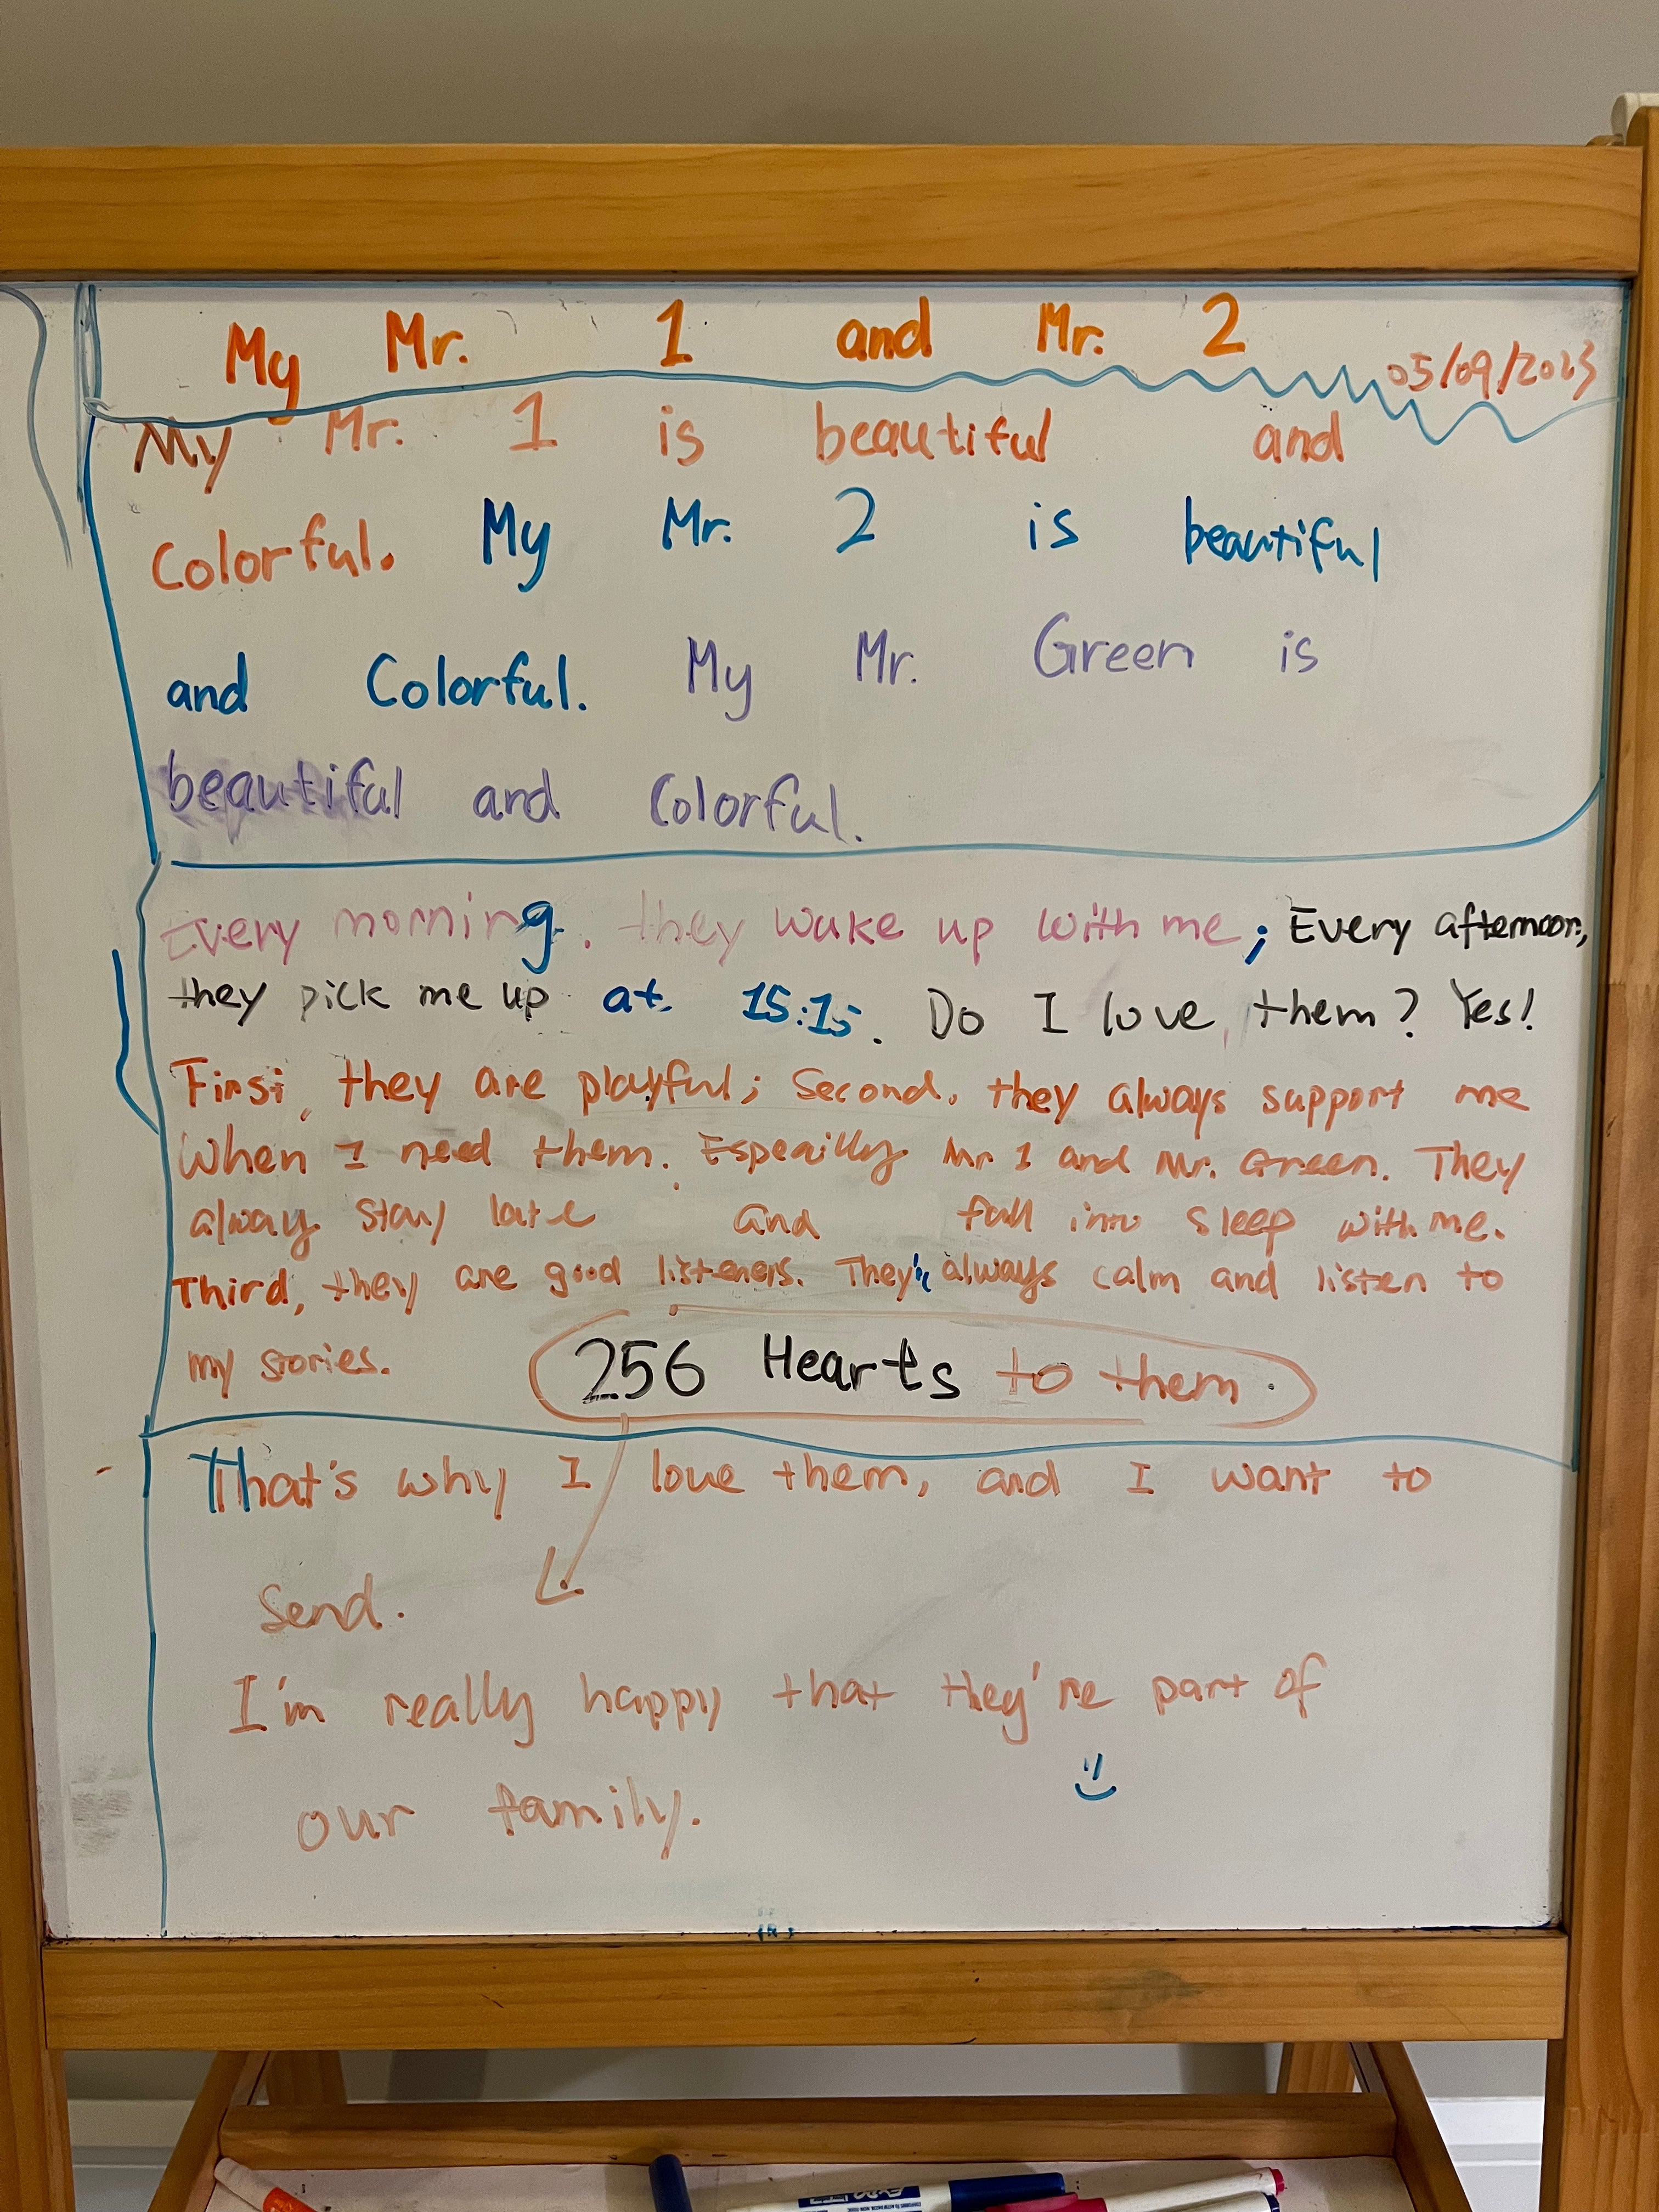 My Mr. 1 and Mr. 2
05/09/2023
My Mr. 1 is beautiful and
Colorful. My Mr. 2 is beautiful
and Colorful. My Mr. Green is
beautiful and Colorful.
Every morning, they wake up with me; Every afternoon,
they pick me up at 15:15. Do I love them? Yes!
First, they are playful; Second, they always support me
When I need them. Espeailly Mr 1 and Mr. Green. They
always stay late and fall into sleep with me.
Third, they are good listeners. They're always calm and listen to
my stories. 256 Hearts to them.
That's why I love them, and I want to
Send.
I'm really happy that they're part of
our family.
EXPO